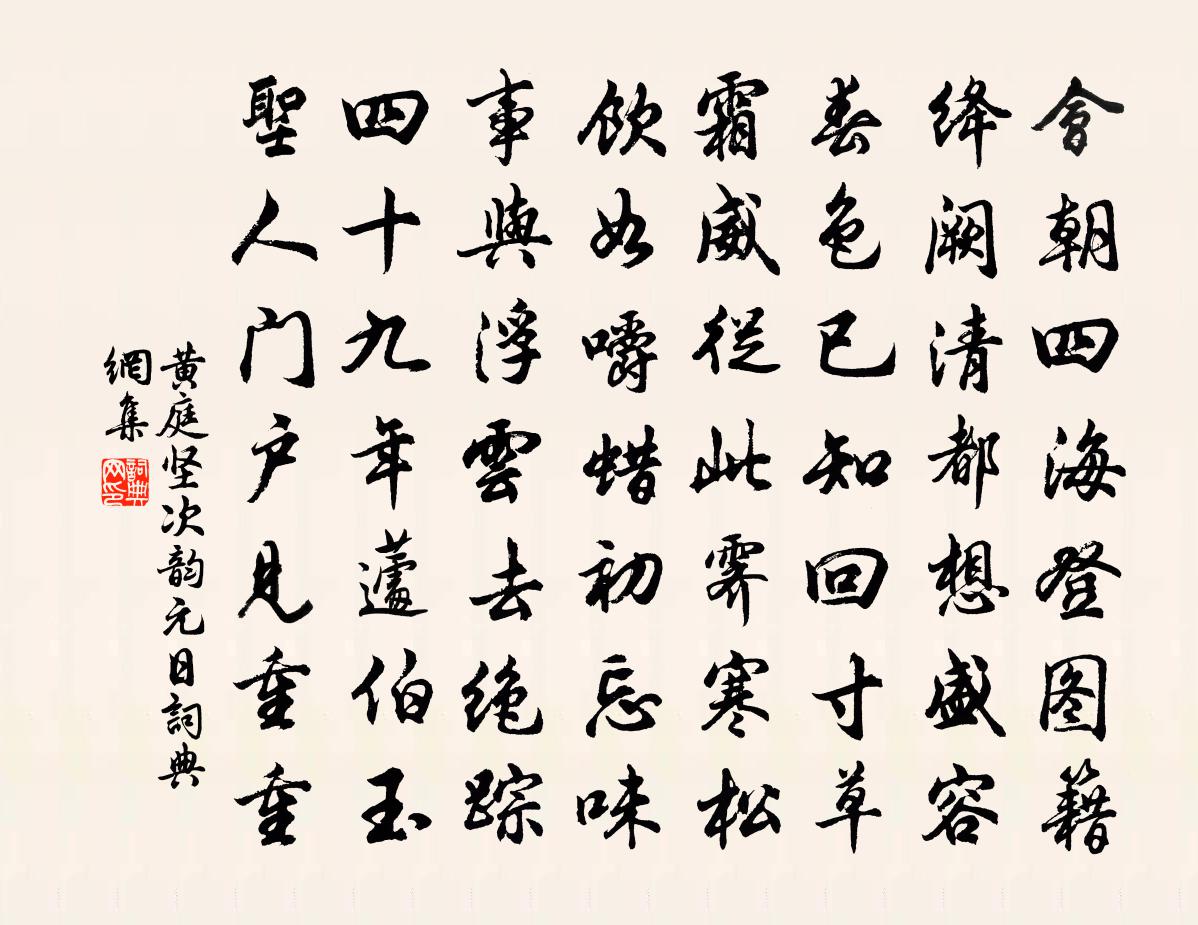 會朝四海登图籍
绛阙清都想盛容
春色已知回寸草
霜威從此霁寒松
飲如嚼蜡初忘味
事與浮雲去绝踪
四十九年蘧伯玉
聖人门户見重重
黄庭坚次韵元日詞典
網集
詞典网印